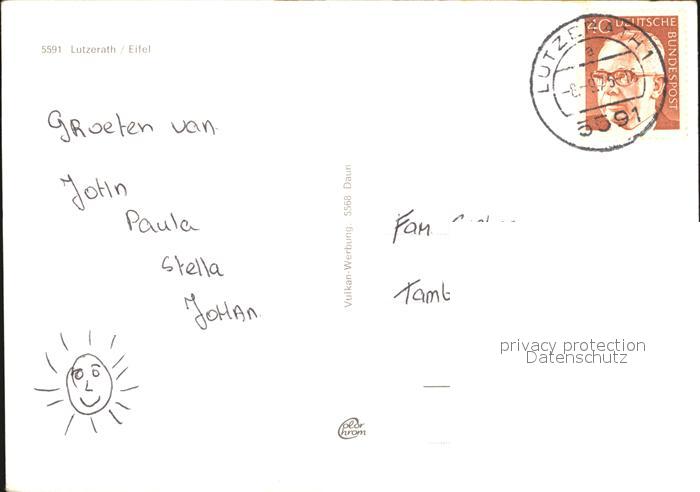 5591 Lutzerath / Eifel
40 DEUTSCHE BUNDESPOST
LUTZERATH 1
5591
GRoeten van
JoHn
Paula
Stella
JoHAn
Vulkan-Werbung, 5568 Daun
Fam
color chrom
privacy protection
Datenschutz